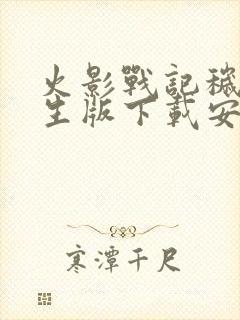 火影戰記穢
生版下載安
寒潭千尺